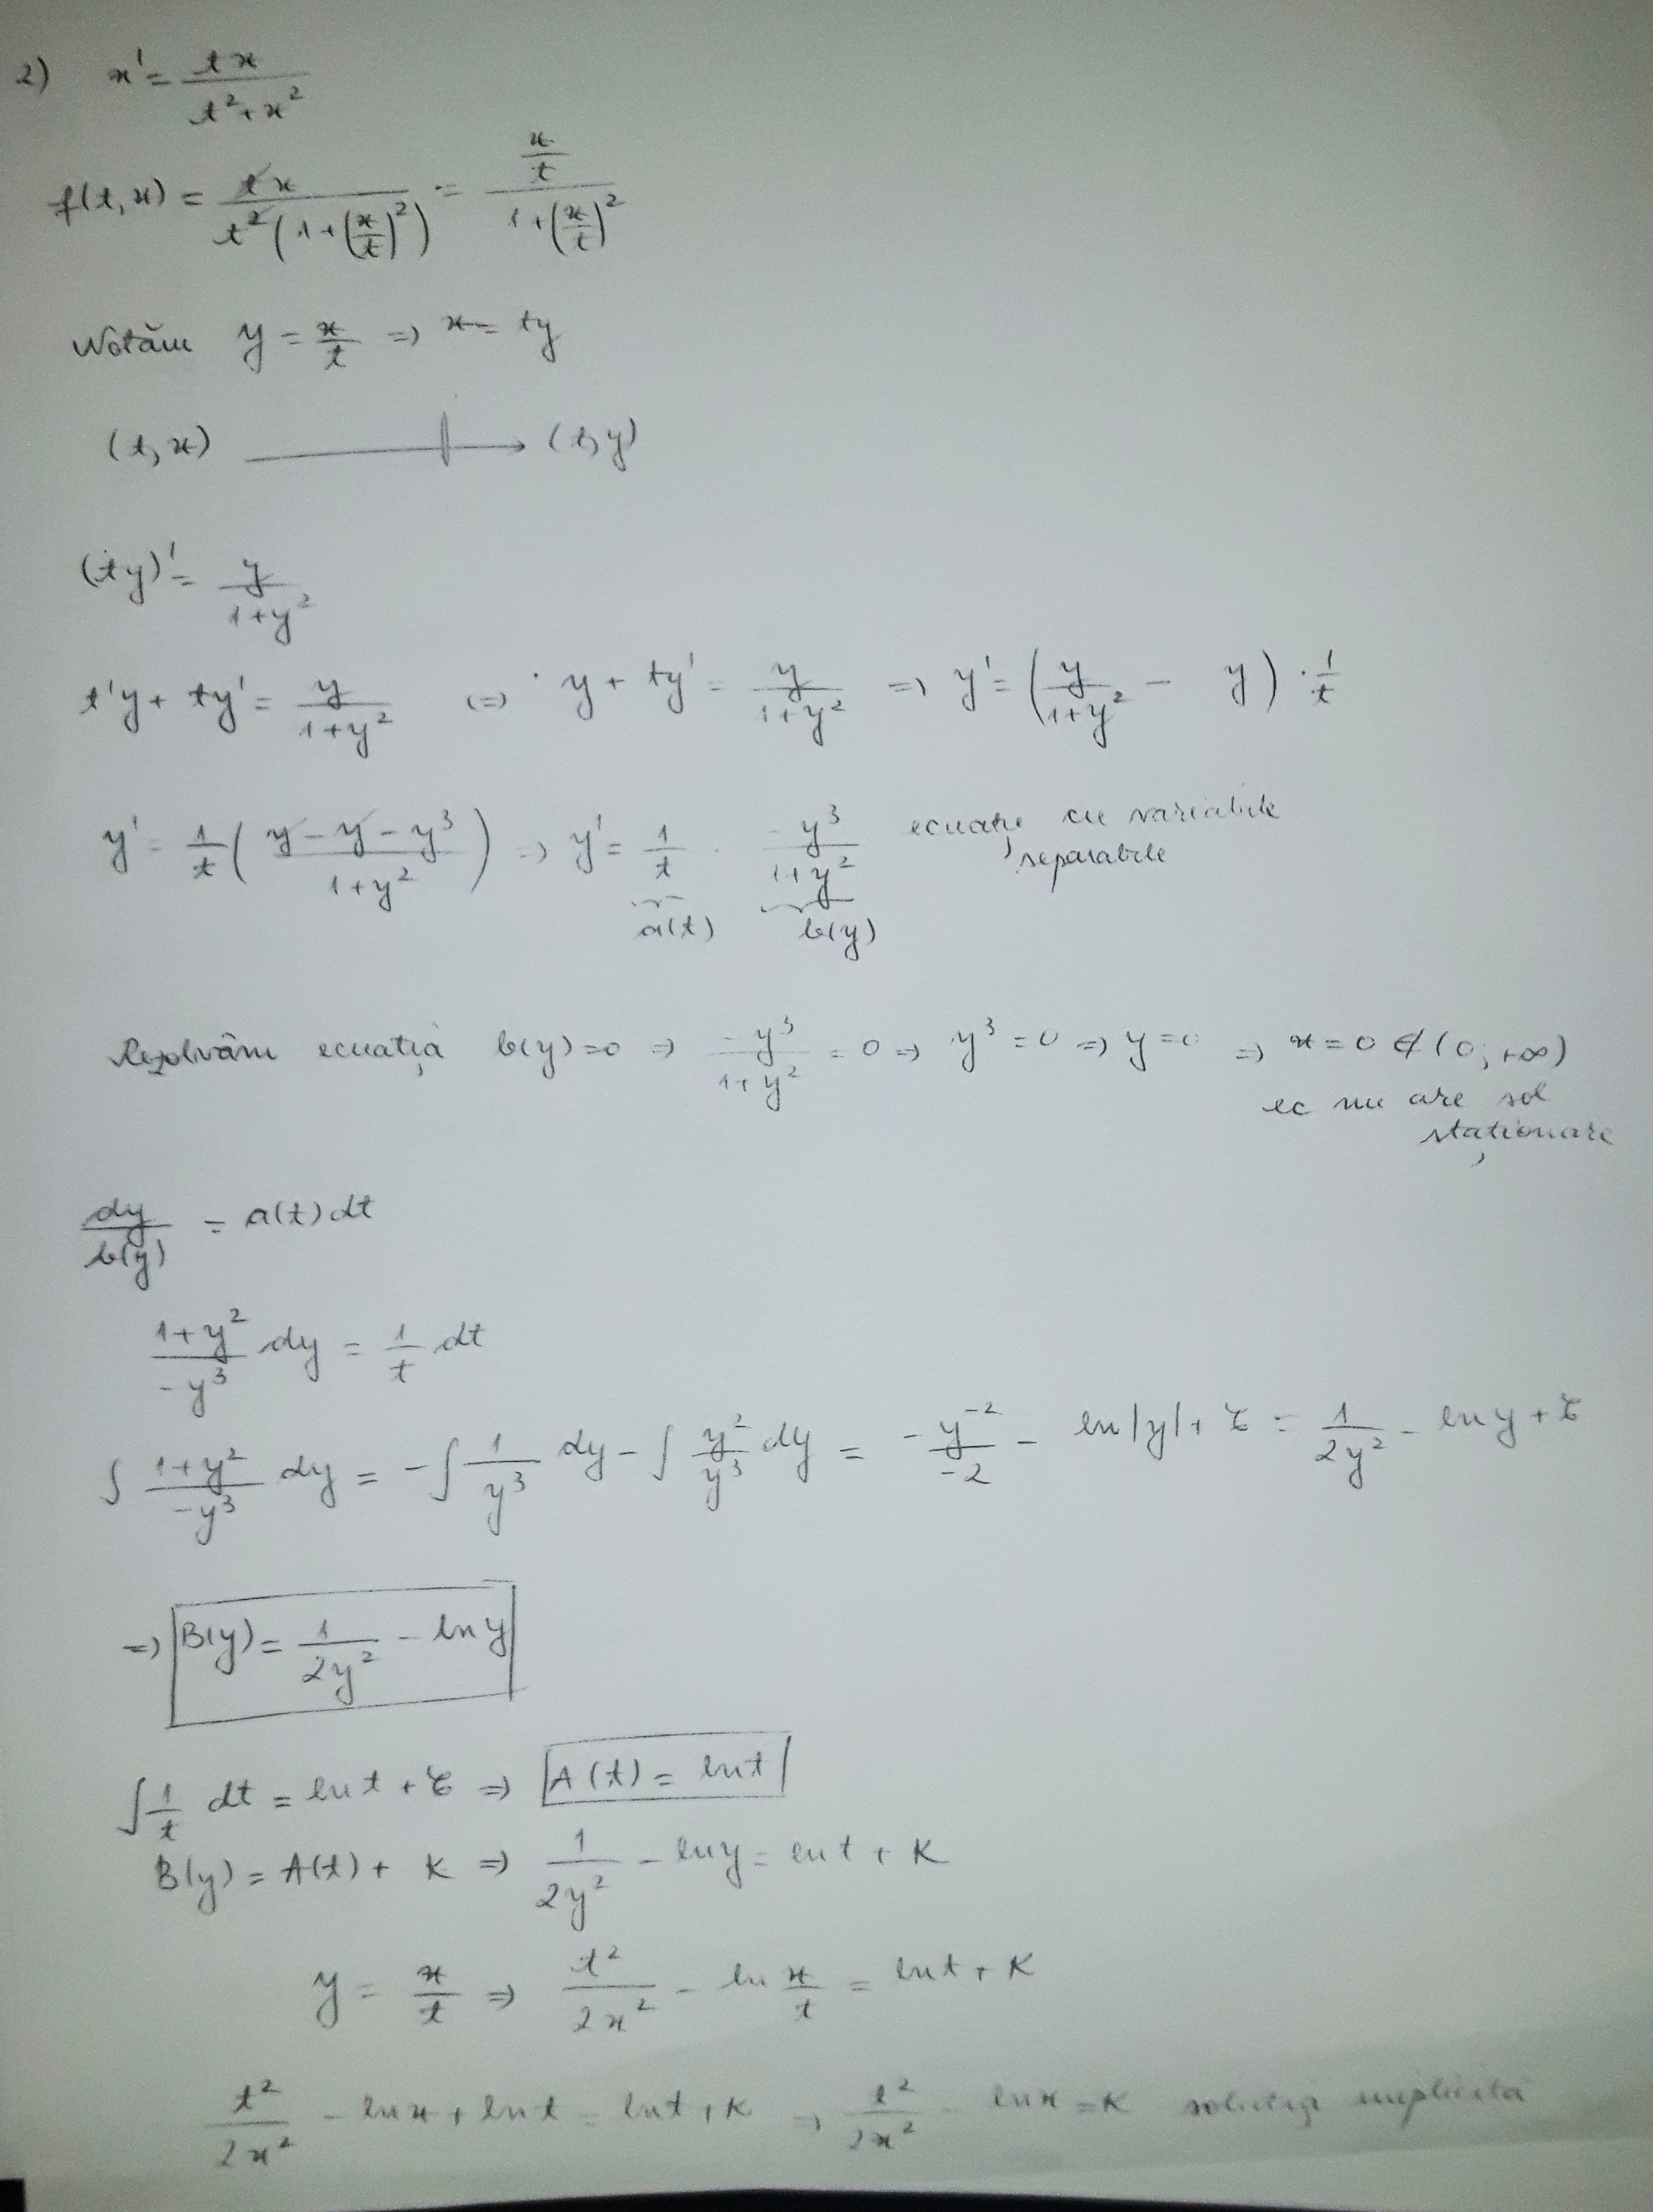 2) x' = tx / (t² + x²)
f(t,x) = tx / (t²(1+(x/t)²)) = (x/t) / (1+(x/t)²)
Notăm y = x/t => x = ty
(t,x) → (t,y)
(ty)' = y / (1+y²)
t'y + ty' = y / (1+y²) <=> y + ty' = y / (1+y²) => y' = (y / (1+y²) - y) · 1/t
y' = 1/t ((y - y - y³) / (1+y²)) => y' = 1/t · (-y³) / (1+y²) ecuație cu variabile
separabile
a(t) b(y)
Rezolvăm ecuația b(y)=0 => -y³ / (1+y²) = 0 => y³ = 0 => y = 0 => x = 0 ∉ (0; +∞)
ec nu are sol
staționare
dy / b(y) = a(t) dt
(1+y²) / (-y³) dy = 1/t dt
∫ (1+y²) / (-y³) dy = -∫ 1/y³ dy - ∫ y²/y³ dy = - y⁻² / -2 - ln|y| + C = 1 / (2y²) - ln y + C
=> B(y) = 1 / (2y²) - ln y
∫ 1/t dt = ln t + C => A(t) = ln t
B(y) = A(t) + K => 1 / (2y²) - ln y = ln t + K
y = x/t => t² / (2x²) - ln x/t = ln t + K
t² / (2x²) - ln x + ln t = ln t + K => t² / (2x²) - ln x = K soluția implicită